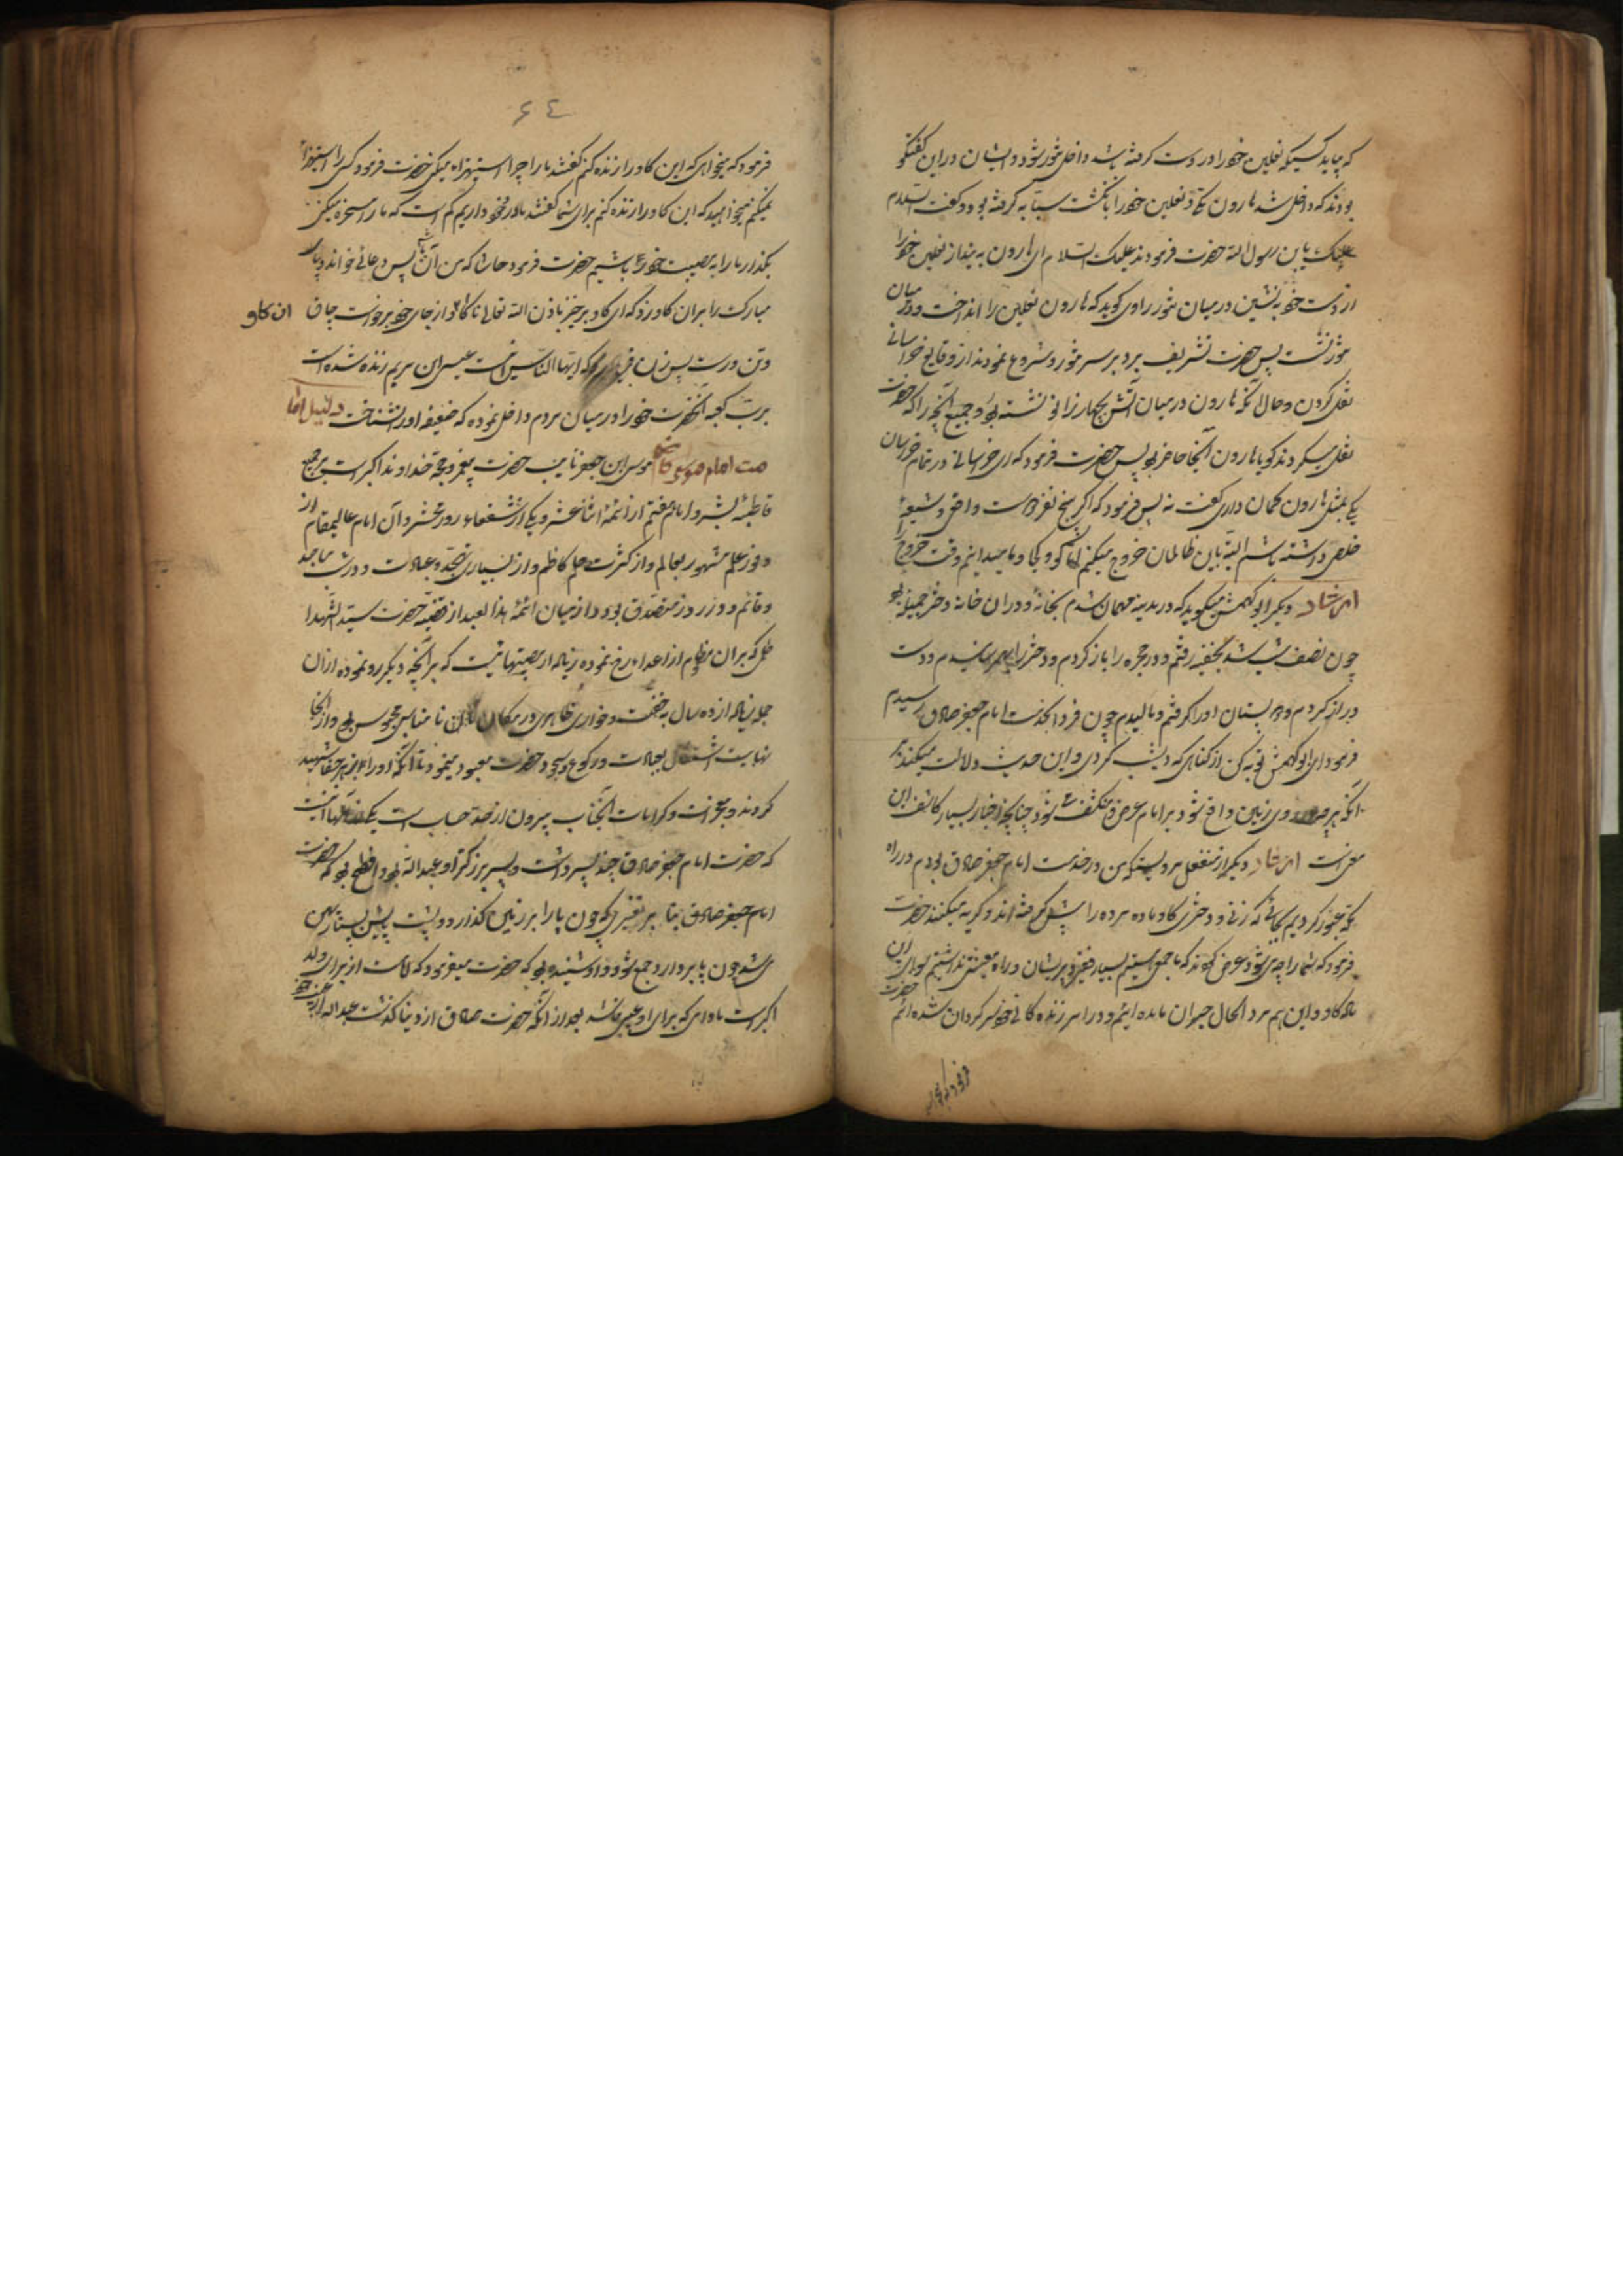 که بیاید کسیکه نعلین خود را در دست گرفته باشد داخل تنور شود و ایشان در این گفتگو
بودند که داخل شد هارون مکی و نعلین خود را بانگشت سبابه گرفته بود و گفت السلام
علیک یابن رسول الله حضرت فرمودند علیک السلام ای هارون بینداز نعلین خود را
از دست خود بنشین در میان تنور راوی گوید که هارون نعلین را انداخت و در میان
تنور نشست پس حضرت تشریف برد بر سر تنور و شروع نمودند از وقایع خراسانی
نقل کردن و حال آنکه هارون در میان آتش بچهار زانو نشسته بود و جمیع آنچه را که حضرت
نقل میکردند گویا هارون آنجا حاضر بود پس حضرت فرمود که ای خراسانی در تمام خراسان
یکی بمثل هارون گمان داری گفت نه پس فرمود که اگر پنج نفر دوست واقعی و شیعهٔ
خلص داشته باشم البته باین ظالمان خروج میکنم اما کو و کجا و ما میدانیم وقت خروج را
ارشاد دیگر ابو کهمش میگوید که در مدینه مهمان شدم بخانهٔ و در آن خانه دختر جمیله بود
چون نصف شب شد بخفیه رفتم و در حجره را باز کردم و دختر را رسیدم و دست
دراز کردم و پستان او را گرفتم و مالیدم چون فردا بخدمت امام جعفر صادق رسیدم
فرمود ای ابو کهمش توبه کن از گناهی که دیشب کردی و این حدیث دلالت میکند بر
آنکه هر چه روی زمین واقع شود بر امام عرض و منکشف شود چنانچه اخبار بسیار کاشف این
معنی است ارشاد دیگر از مفضل مرویست که من در خدمت امام جعفر صادق بودم در راه
مکه عبور کردیم بجائی که زنی و دختری گاو ماده مرده را پیش گرفته اند و گریه میکنند حضرت
فرمود که شما را چه میشود عرض کردند که ما جمعی هستیم بسیار فقیر و پریشان و راه معیشتی نداشتیم سوای این
ماده گاو و این هم مرد الحال حیران مانده ایم و در امر زندگانی خود سرگردان شده ایم حضرت
۶٤
فرمود که میخواهی که این گاو را زنده کنم گفتند ما را چرا استهزاء میکنی حضرت فرمود کسی را استهزا
نمیکنم میخواهید که این گاو را زنده کنم برای شما گفتند مادر خود داریم کم است که ما را مسخره میکنی
بگذار ما را به مصیبت خود باشیم حضرت فرمود حاشا که من آن باشم پس دعائی خواند و پای
مبارک را بر آن گاو زد که ای گاو برخیز باذن الله تعالی ناگاه از جای خود برخواست چاق ان کاو
و تن درست پس زن فریاد که ایها الناس این است عیسی ابن مریم زنده شده است
برب کعبه آنحضرت خود را در میان مردم داخل نموده که ضعیفه او را نشناخت دلیل اما
مت امام موسی کاظم موسی ابن جعفر نایب حضرت پیغمبر و حجة خداوند اکبر است بر جمیع
قاطبهٔ بشر و امام هفتم از ائمهٔ اثنا عشر و یکی از شفعاء روز محشر و آن امام عالیمقام از
وفور علم مشهور بعالم و از کثرت حلم کاظم و از بسیاری تهجد و عبادت و در شب ساجد
و قائم و روز متصدق بود و از میان ائمهٔ هدا بعد از قضیه حضرت سید الشهدا
ظلمی که بر آن مظلوم از اعداء رخ نموده زیاده از مصیبتهائیست که بر آنچه دیگر رو نموده از آن
جمله زیاده از ده سال به خفت و خواری ظاهری در مکان نا مناسبی محبوس بود و از آنجا
نهایت اشتغال بعبادت و رکوع و سجود حضرت معبود مینمود تا آنکه او را بزهر جفا شهید
کردند و معجزات و کرامات آنجناب بیرون از حد حساب است یکی از آنها اینست
که حضرت امام جعفر صادق چند پسر داشت و پسر بزرگتر او عبد الله بود و افطح بود که حضرت
امام جعفر صادق بتقریبی که چون پا را بر زمین گذارد و پشت پایش بسیار پهن
میشد چون پا بردارد جمع شود و او شنیده بود که حضرت میفرمود که امامت از برای ولد
اکبر است مادامی که برای او عیبی نباشد بعد از آنکه حضرت صادق از دنیا گذشت عبد الله